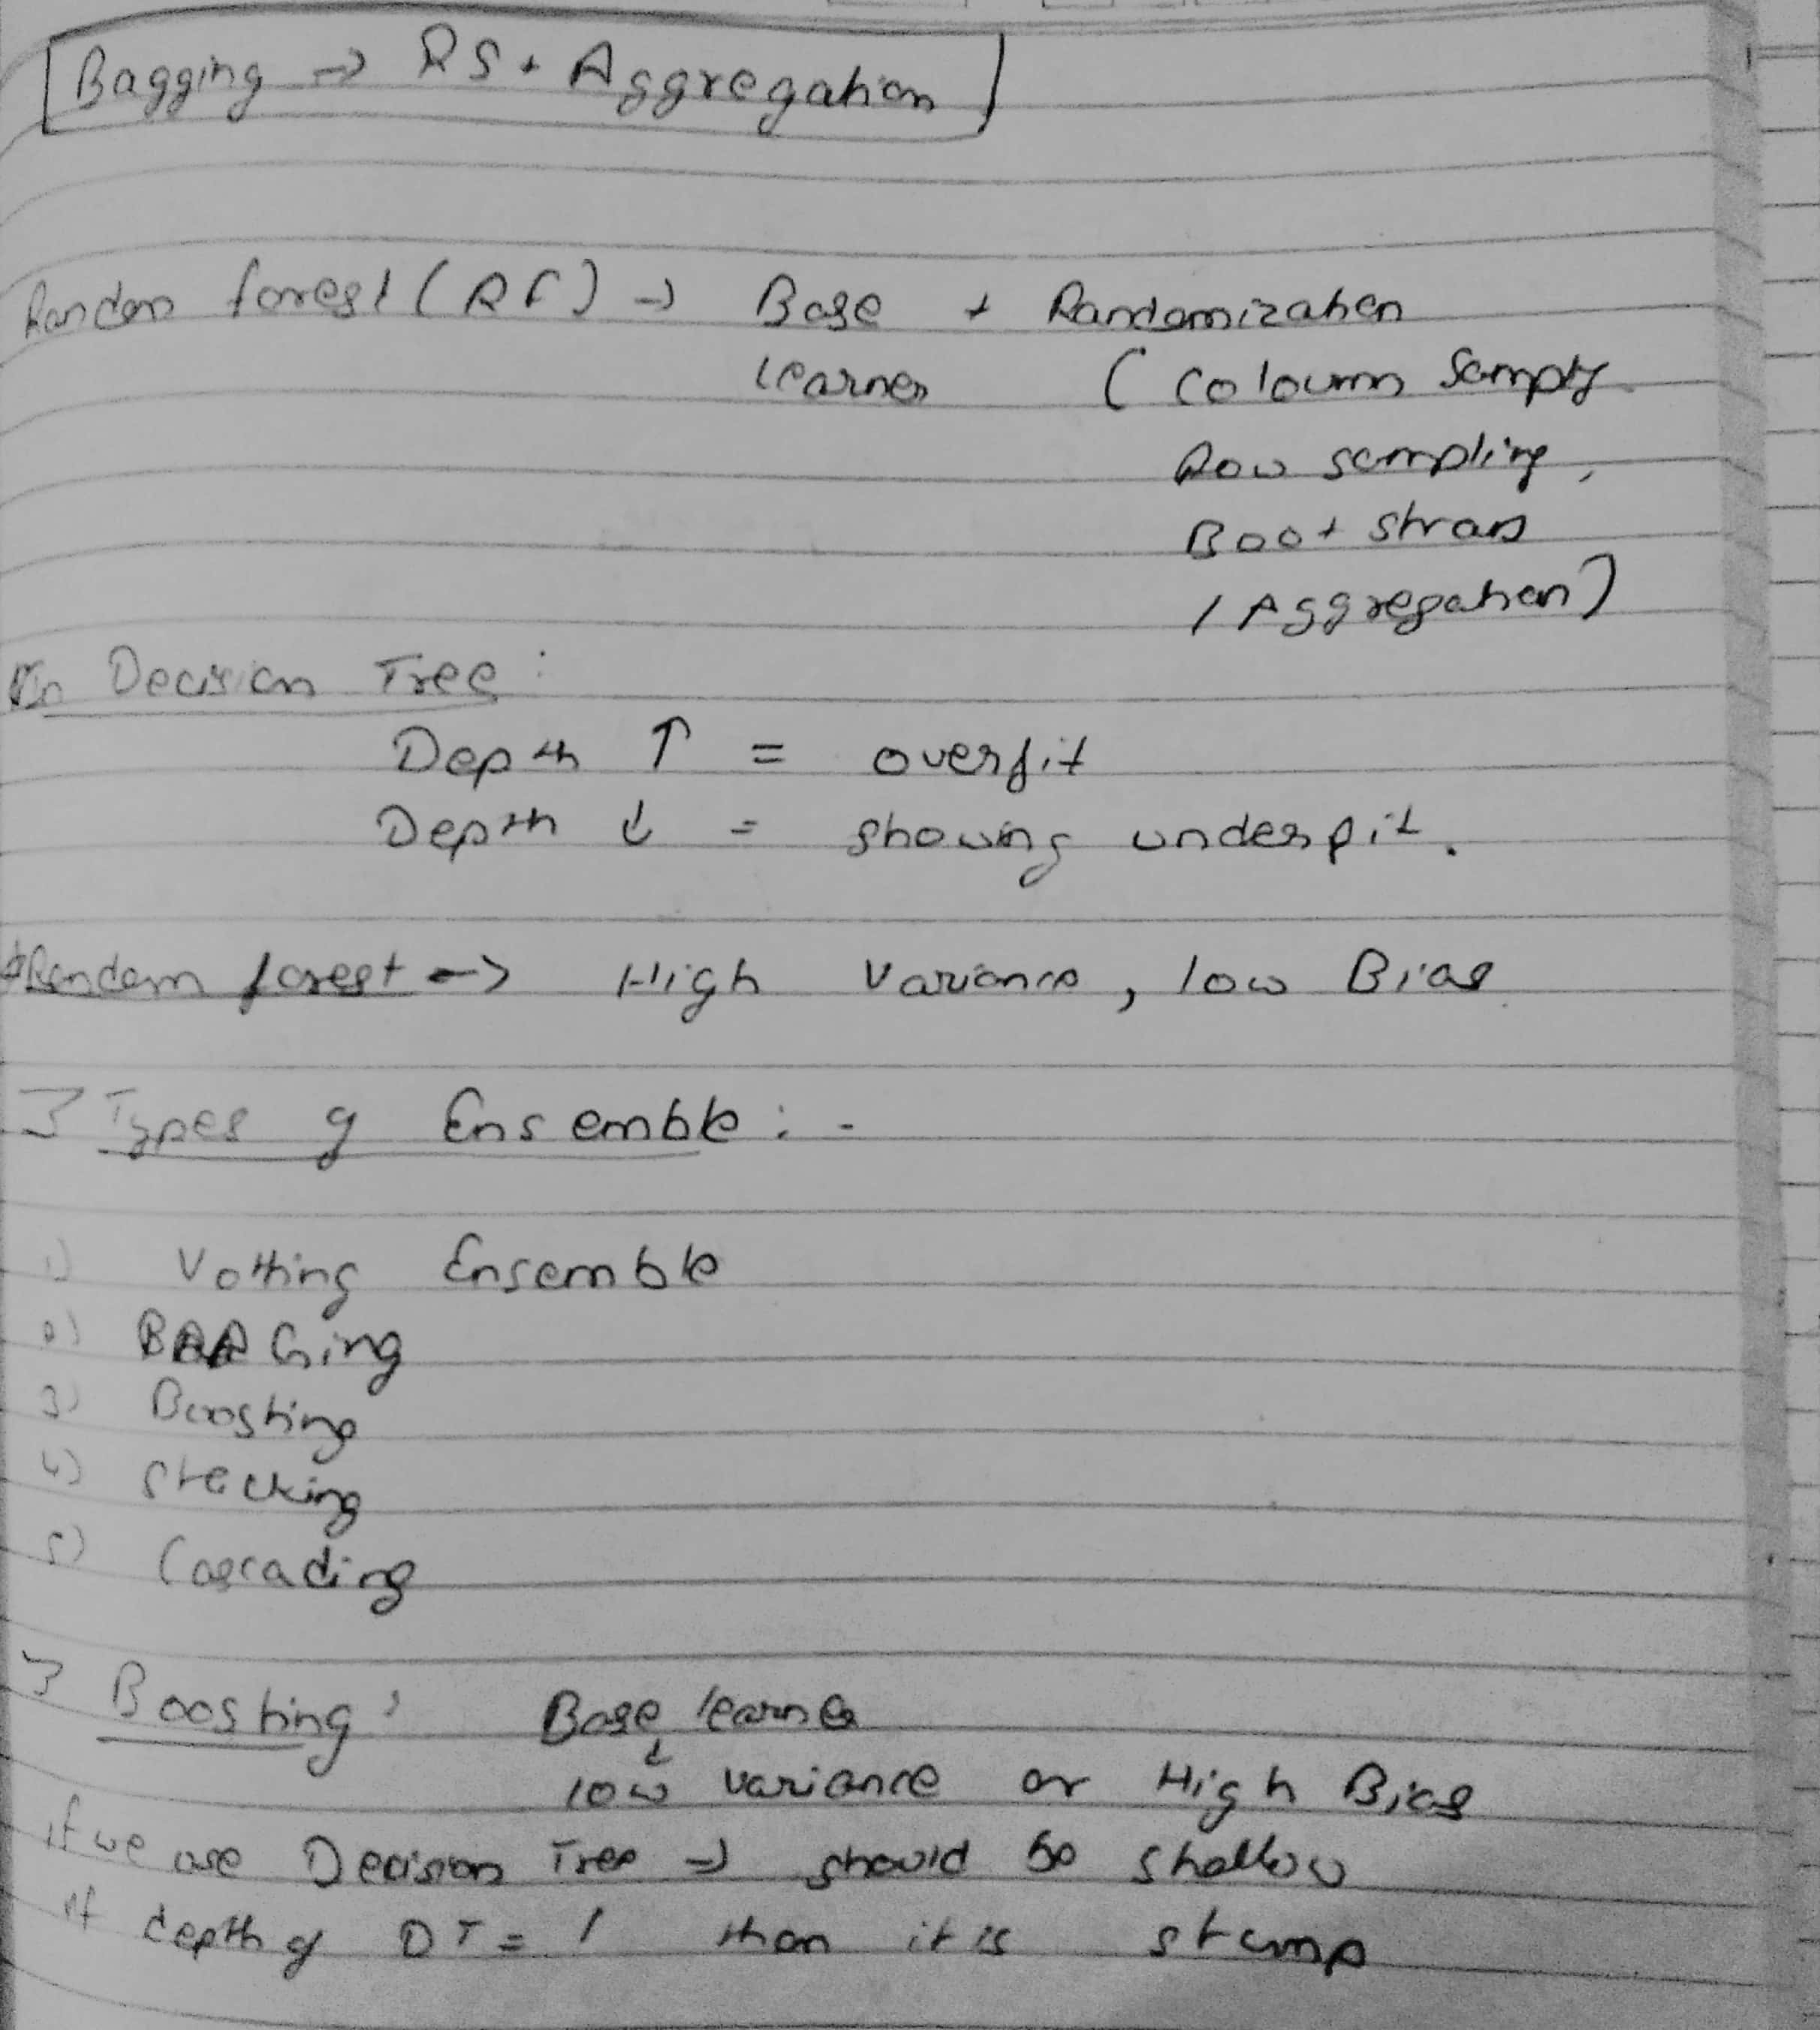 Bagging → RS + Aggregation
Random forest (RF) → Base + Randomization
learner ( Coloumn Sampling
Row sampling,
Boot strap
/ Aggregation)
In Decision Tree :
Depth ↑ = overfit
Depth ↓ = showing underfit.
Random forest → High Variance, low Bias
Types of Ensemble :-
1) Votting Ensemble
2) BAGing
3) Boosting
4) Stacking
5) Cascading
Boosting : Base learner
↓
low variance or High Bias
if we use Decision Tree → should be shallow
if depth of DT = 1 then it is stump